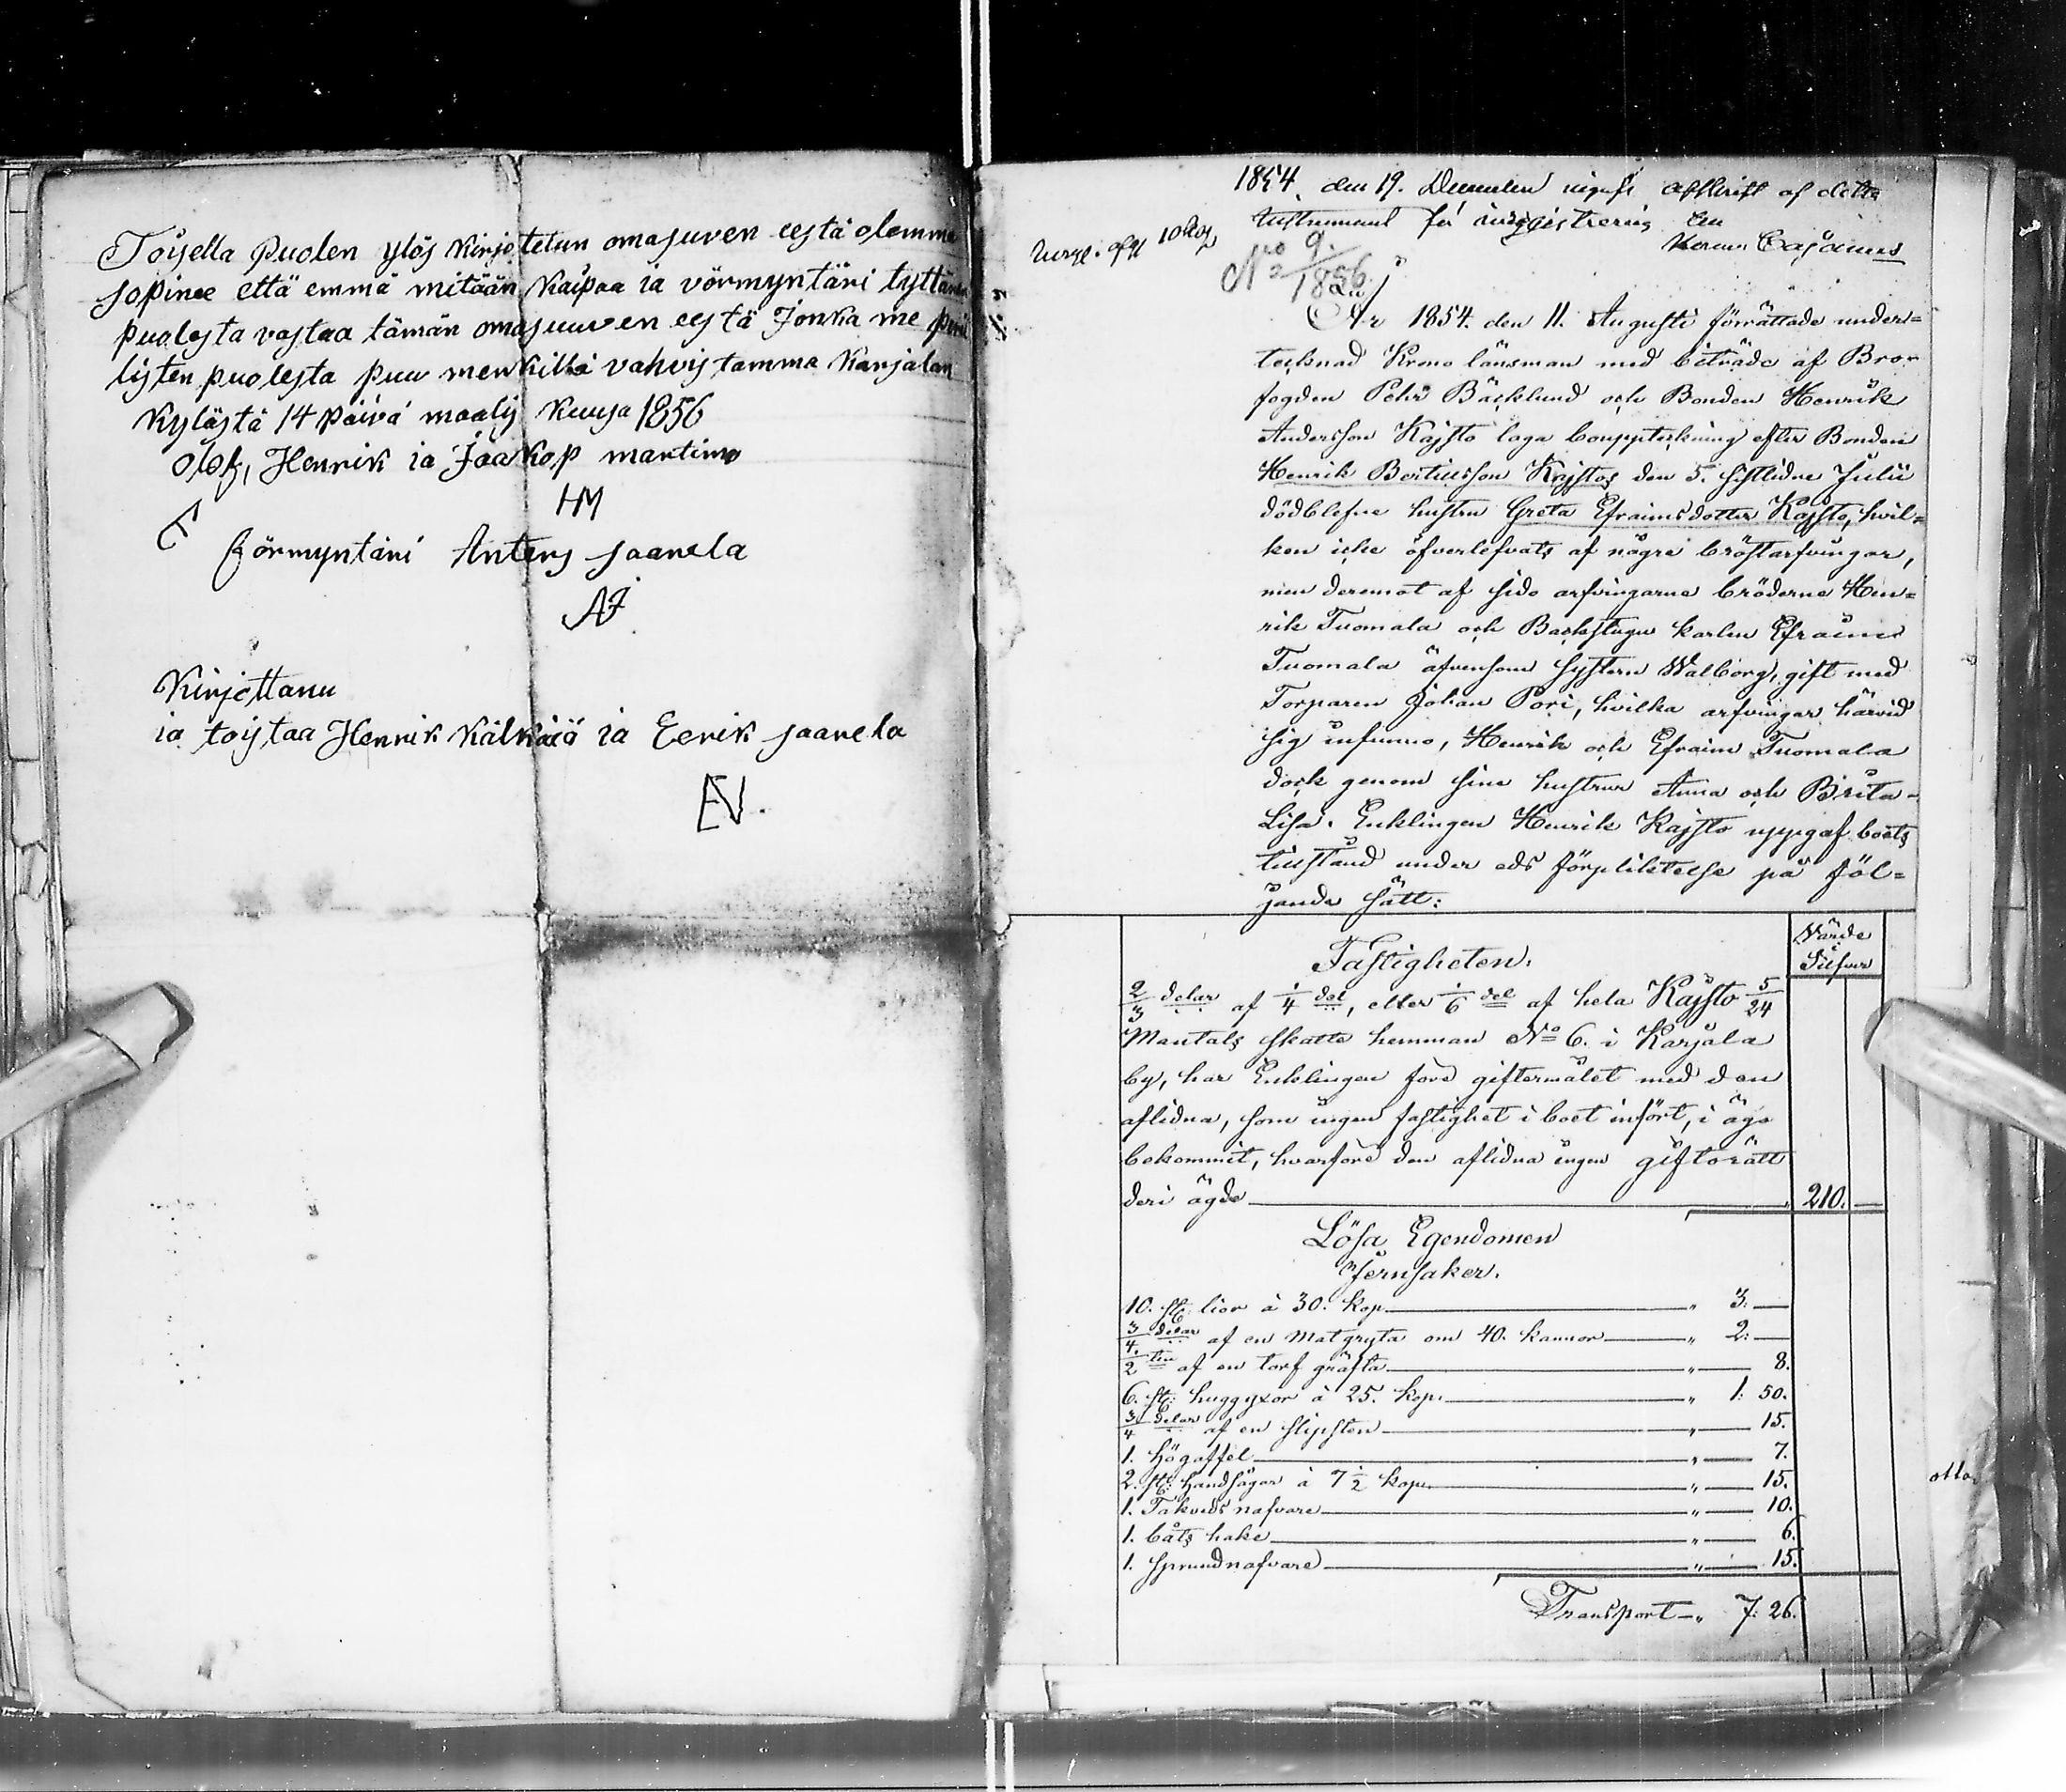 Toisella Puolen ylös Kirjotetun omasuven eestä olemme
sopinee että emmä mitään Kaipaa ia vörmyntäri tyttären
puolesta vastaa tämän omasuuven eestä Jonka me peril
listen puolesta puu merkillä vahvistamma Karjalan
Kylästä 14 päivä maalis Kuusa 1856
Olof, Henrik ia Jaakop martimo
HM
förmyntäri Anters saarela
AJ
Kirjottanu
ia toistaa Henrik Kälkäiä ia Eerik saarela
1854 den 19. December afskrift af detta
instrument för inregistrering
10 Kop
No 9.
1856
År 1854. den 11. Augusti förrättade under=
tecknad Krono länsman med biträde af Bro
fogden Pehr Bäcklund och Bonden Henrik
Andersson Kajsto laga bouppteckning efter Bonden
Henrik Bertilsson Kajstos den 5. sistlidne Julii
dödblefne hustru Greta Efraimsdotter Kajsto, hvil=
ken icke öfverlefvats af några bröstarfvingar,
men deremot af sido arfvingarne bröderne Hen=
rik Tuomala och Backstugu karlen Efraim
Tuomala äfvensom systern Walborg, gift med
Torparen Johan Pori, hvilka arfvingar härvid
sig infunno, Henrik och Efraim Tuomala
dock genom sina hustrur Anna och Brita-
Lisa. Enklingen Henrik Kajsto uppgaf boets
tillstånd under eds förpliktelse på föl=
jande sätt:
Värde
i
Silfver
Fastigheten.
2/3 delar af 1/4 del, eller 1/6 del af hela Kajsto 5/24
Mantals skatte hemman No 6. i Karjala
by, har Enklingen före giftermålet med den
aflidna, som ingen fastighet i boet infört, i ägo
bekommit, hvarföre den aflidna ingen giftorätt
deri ägde 210. —
Lösa Egendomen
Jernsaker.
10. st: lior à 30. kop. " 3: —
3/4 delar af en Matgryta om 40. kannor " 2: —
1/2 ten af en torf gräfta " — 8.
6. st: huggyxor à 25. kop. " 1: 50.
3/4 delar af en slipsten " — 15.
1. högaffel " — 7.
2. st: handsågar à 7 1/2 kop. " — 15.
1. Takveds nafvare " — 10.
1. båts hake " — 6.
1. sprundnafvare " — 15.
Transport " 7: 26.